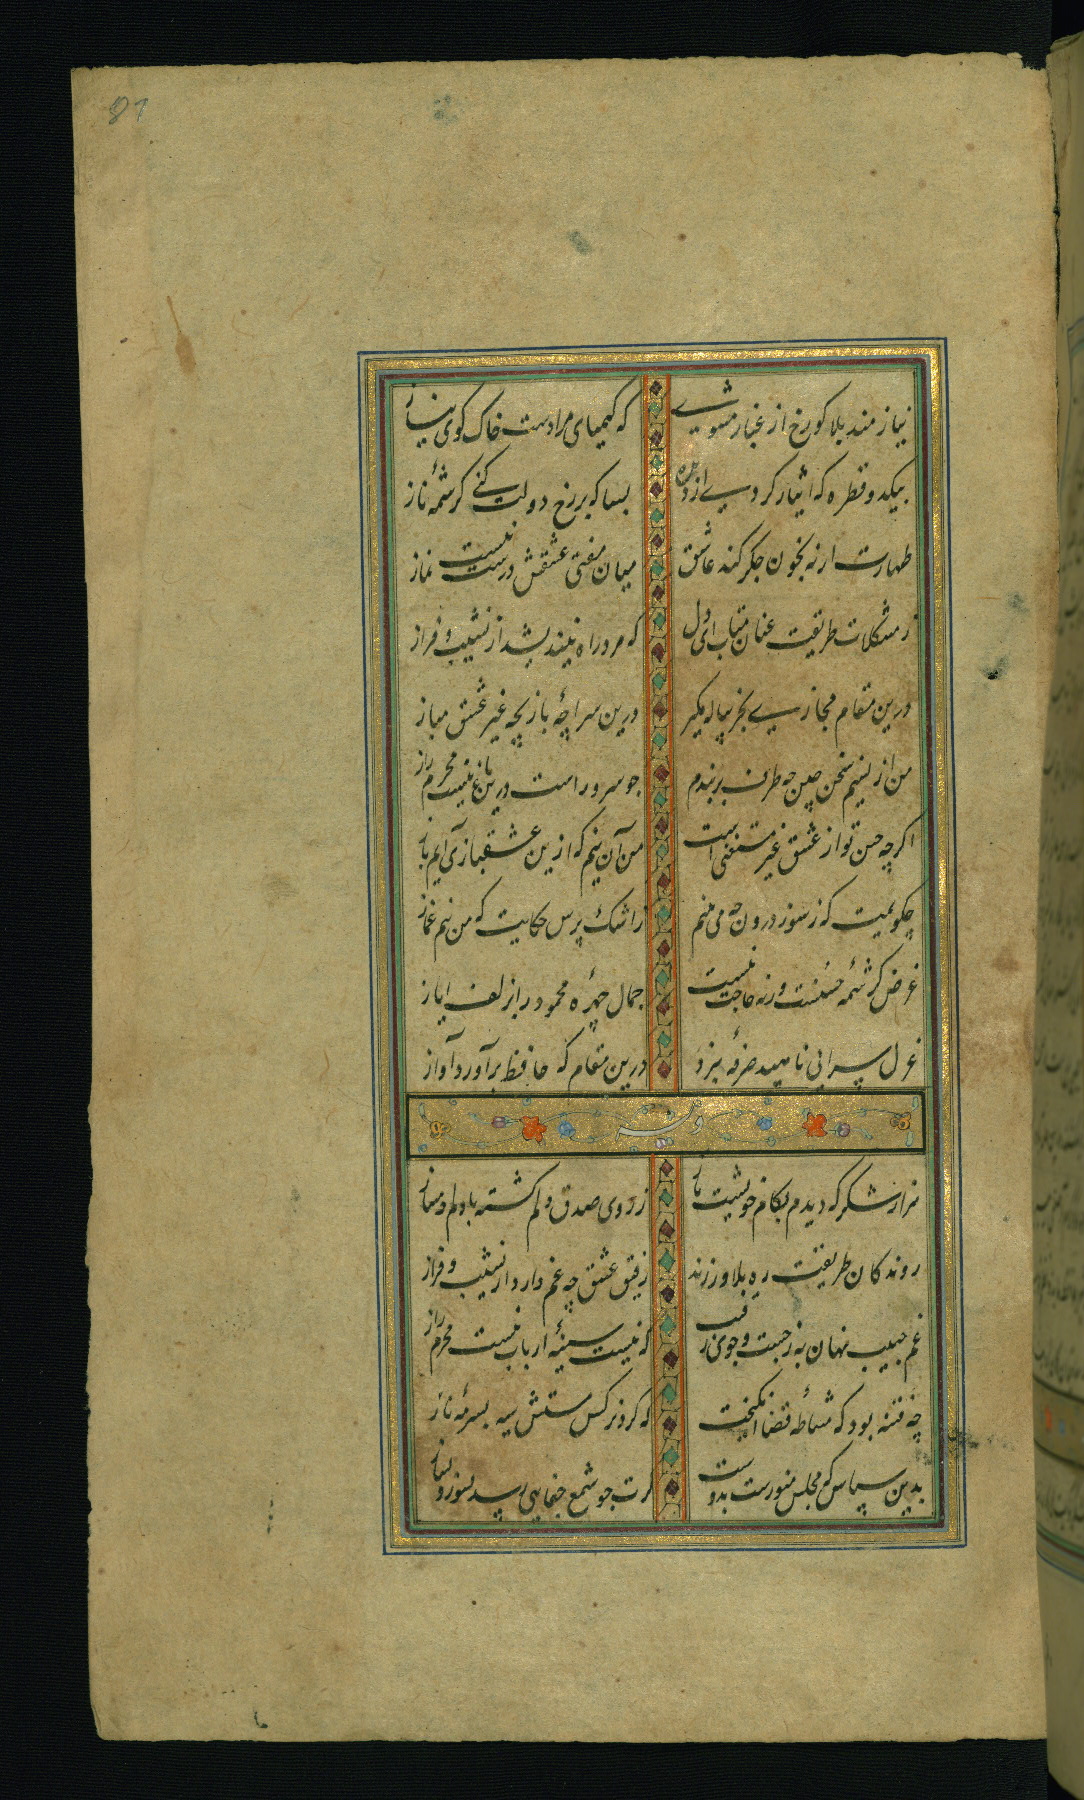 87
نیازمند بلا کو رخ از غبار مشوی که کیمیای مرادست خاک کوی نیاز
بیکدو قطره که ایثار کردی از دیده بسا که بر رخ دولت کنی کرشمه ناز
طهارت ار نه بخون جکر کند عاشق میان مفتی عشقش درست نیست نماز
ز مشکلات طریقت عنان متاب ای دل که مرد راه نیندیشد از نشیب و فراز
درین مقام مجازی بجز پیاله مکیر درین سراچهٔ بازیچه غیر عشق مباز
من از نسیم سخن چین چه طرف بربندم جو سرو راست درین باغ نیست محرم راز
اکرچه حسن تو از عشق غیر مستغنی است من آن نیم که ازین عشقبازی آیم باز
چکویمیت که ز سوز درون چه می بینم ز اشک پرس حکایت که من نیم غماز
غرض کرشمهٔ حسنست ورنه حاجت نیست جمال چهره محمود را زلف ایاز
غزل سرایی ناهید صرفهٔ نبرد درین مقام که حافظ برآورد آواز
وله
هزار شکر که دیدم بکام خویشت باز ز روی صدق دلم کشته با دلم دمساز
روندکان طریقت ره بلا ورزند رفیق عشق چه غم دارد از نشیب و فراز
غم حبیب نهان به ز جست وجوی رقیب که نیست سینهٔ ارباب نیست محرم راز
چه فتنه بود که مشاطه قضا انکیخت که کرد نرکس مستش سیه بسرمهٔ ناز
بدین سپاس که مجلس منورست بدوست کرت جو شمع جفایی رسد بسوز و بساز